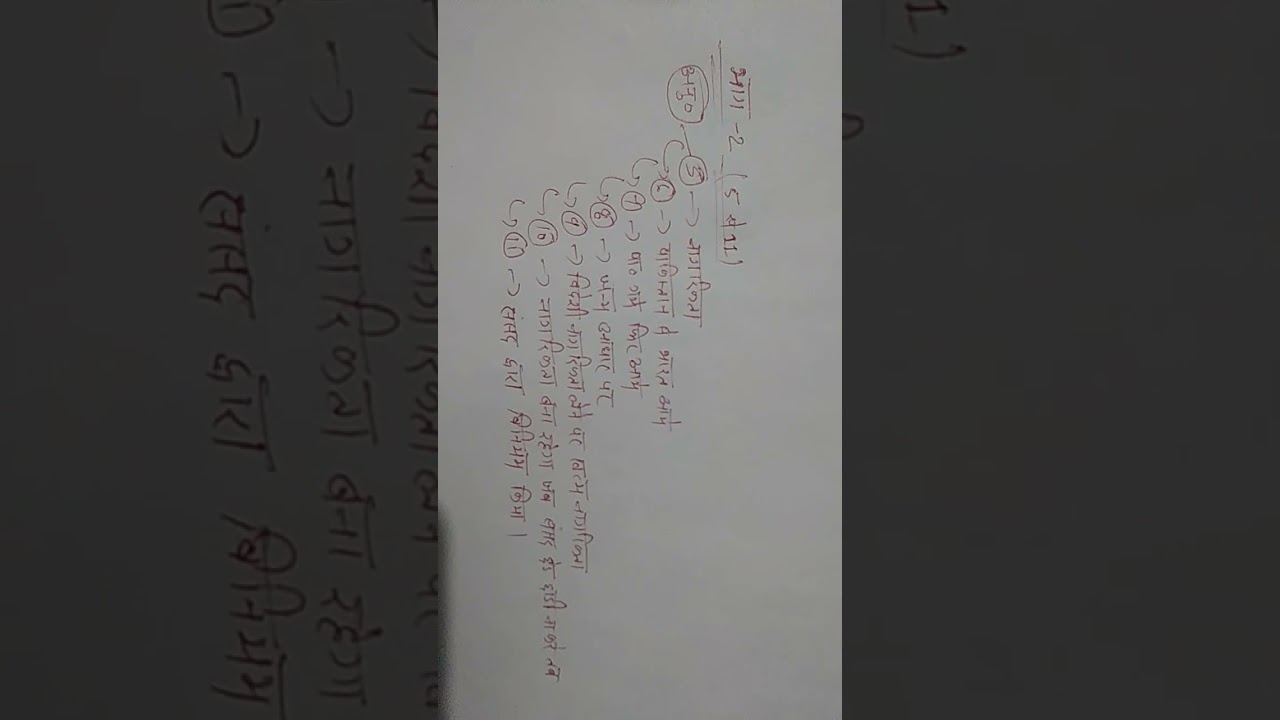 भाग -2 (5 से 11)
अनु० → 5 → नागरिकता
6 → पाकिस्तान से भारत आये
7 → पाक गये फिर आये
8 → जन्म आधार पर
9 → विदेशी नागरिकता लेने पर खत्म नागरिकता
10 → नागरिकता बना रहेगा जब संसद कुछ ना करे तब
11 → संसद द्वारा विनियम किया।